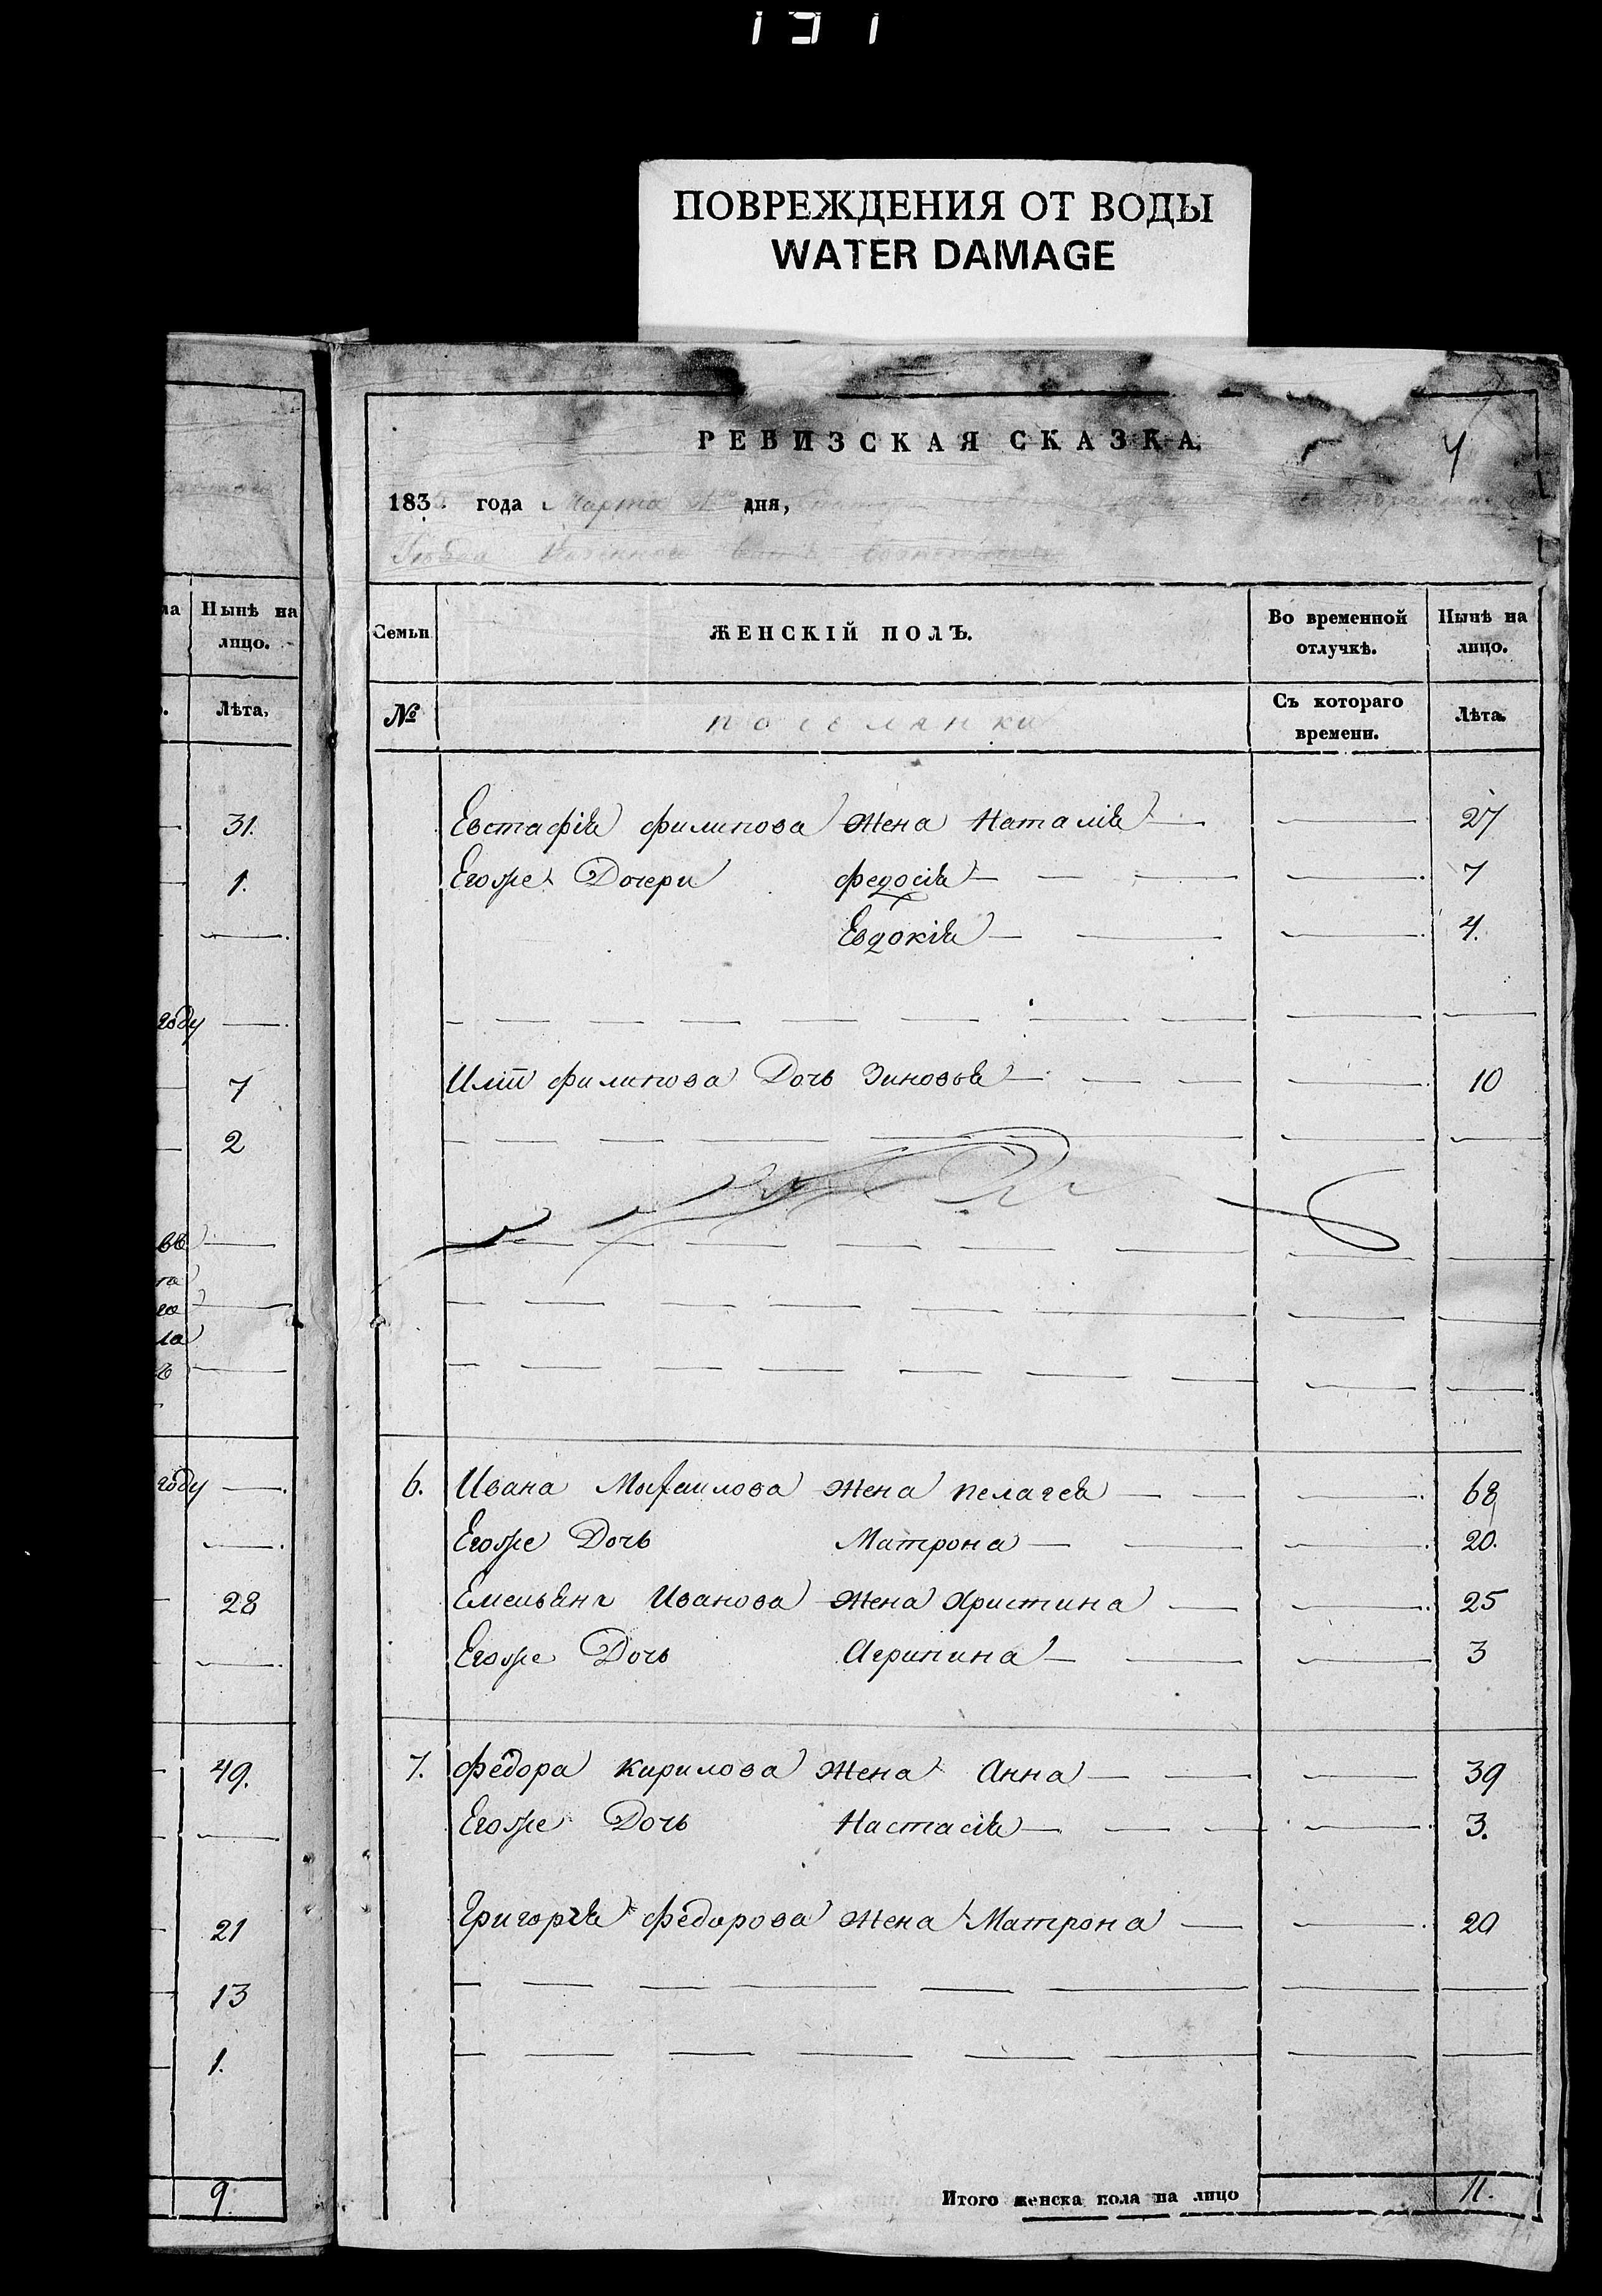 ПОВРЕЖДЕНИЯ ОТ ВОДЫ
WATER DAMAGE
на Нынѣ на лицо.
Лѣта,
31.
1.
году
7
2
году
28
49.
21
13
1.
9.
РЕВИЗСКАЯ СКАЗКА.
4
183 года Марта дня,
Семьи ЖЕНСКІЙ ПОЛЪ. Во временной отлучкѣ. Нынѣ на лицо.
№ поселянки Съ котораго времени. Лѣта.
Евстафія филипова Жена Наталія 27
Егоже Дочери федосія 7
Евдокія 4.
филипова Дочь Зиновья 10
6. Ивана Михаилова жена пелагея 68
Егоже Дочь Матрона 20.
Емельяна Иванова жена Христина 25
Егоже Дочь Агрипина 3
7. федора Кирилова жена Анна 39
Егоже Дочь Настасія 3.
Григорія федорова жена Матрона 20
Итого женска пола на лицо 11.